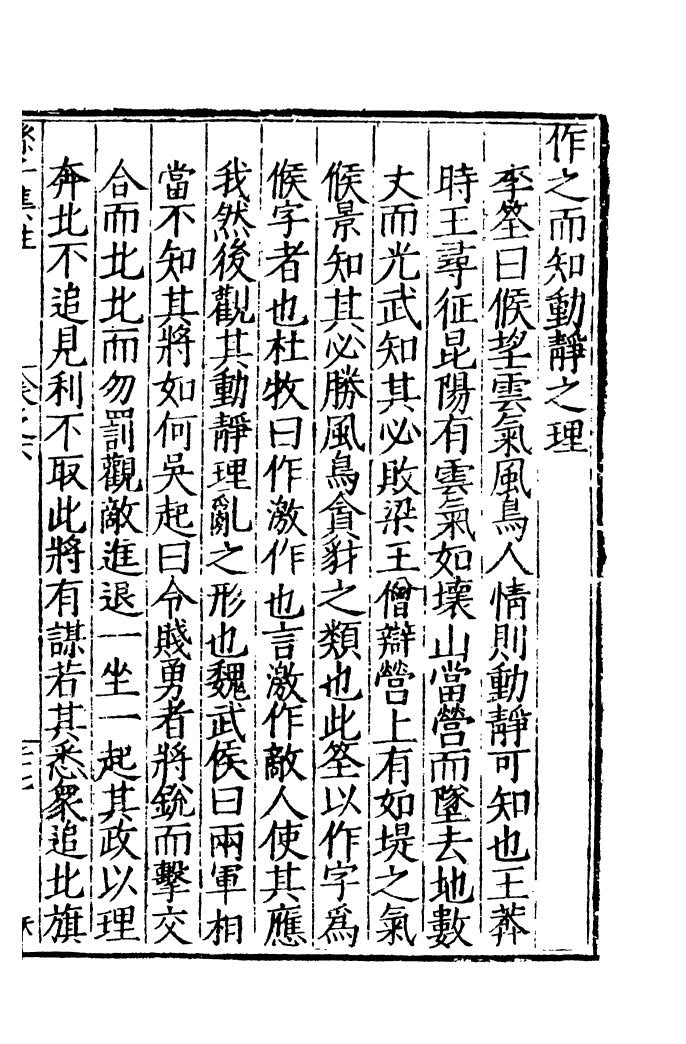 作之而知動靜之理
李筌曰候望雲氣風鳥人情則動靜可知也王莽
時王尋征昆陽有雲氣如壞山當營而墜去地數
丈而光武知其必敗梁王僧辯營上有如堤之氣
侯景知其必勝風鳥貪豺之類也此筌以作字爲
候字者也杜牧曰作激作也言激作敵人使其應
我然後觀其動靜理亂之形也魏武侯曰兩軍相
當不知其將如何吳起曰令賤勇者將銳而擊交
合而北北而勿罰觀敵進退一坐一起其政以理
奔北不追見利不取此將有謀若其悉衆追北旗